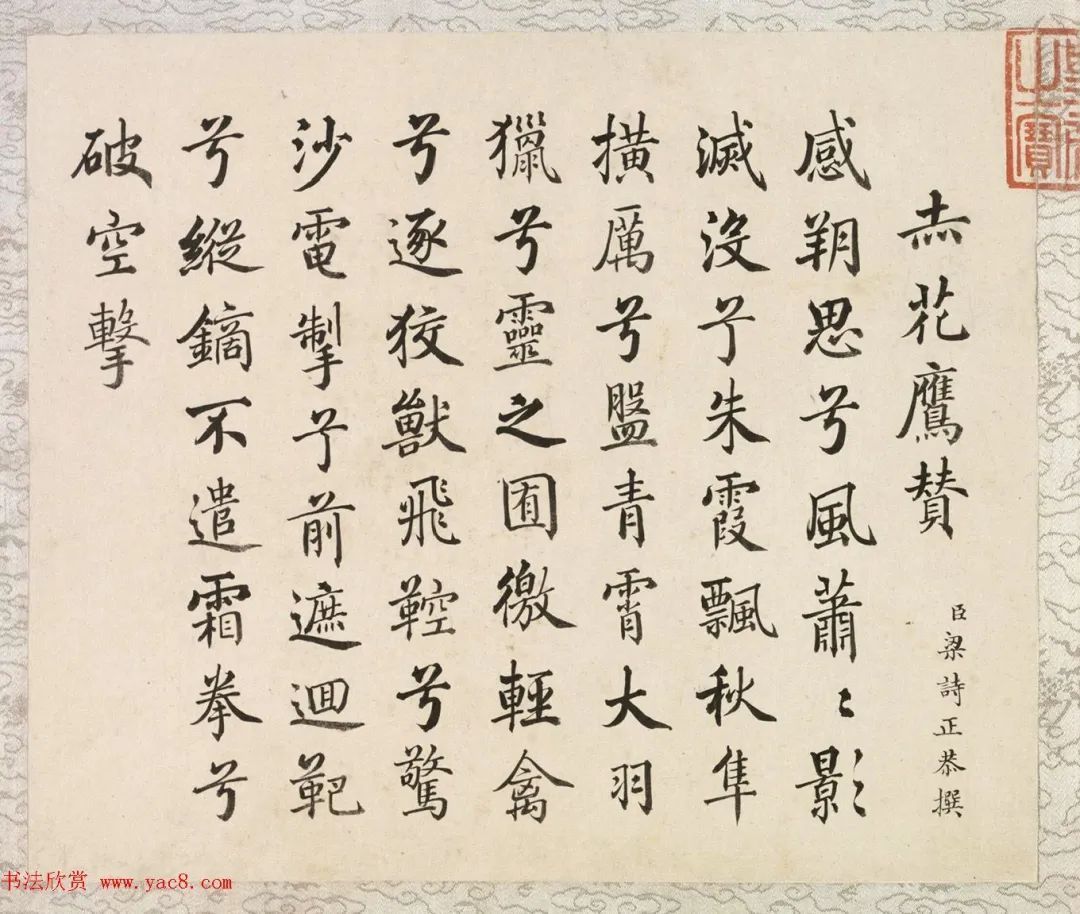 赤花鷹賛
臣梁詩正恭撰
感朔思兮風蕭〻影
滅没兮朱霞飄秋隼
横厲兮盤青霄大羽
獵兮靈之囿徼輕禽
兮逐狡獸飛鞚兮驚
沙電掣兮前遮迴靶
兮縱鏑不遣霜拳兮
破空擊
之寶
书法欣赏 www.yac8.com